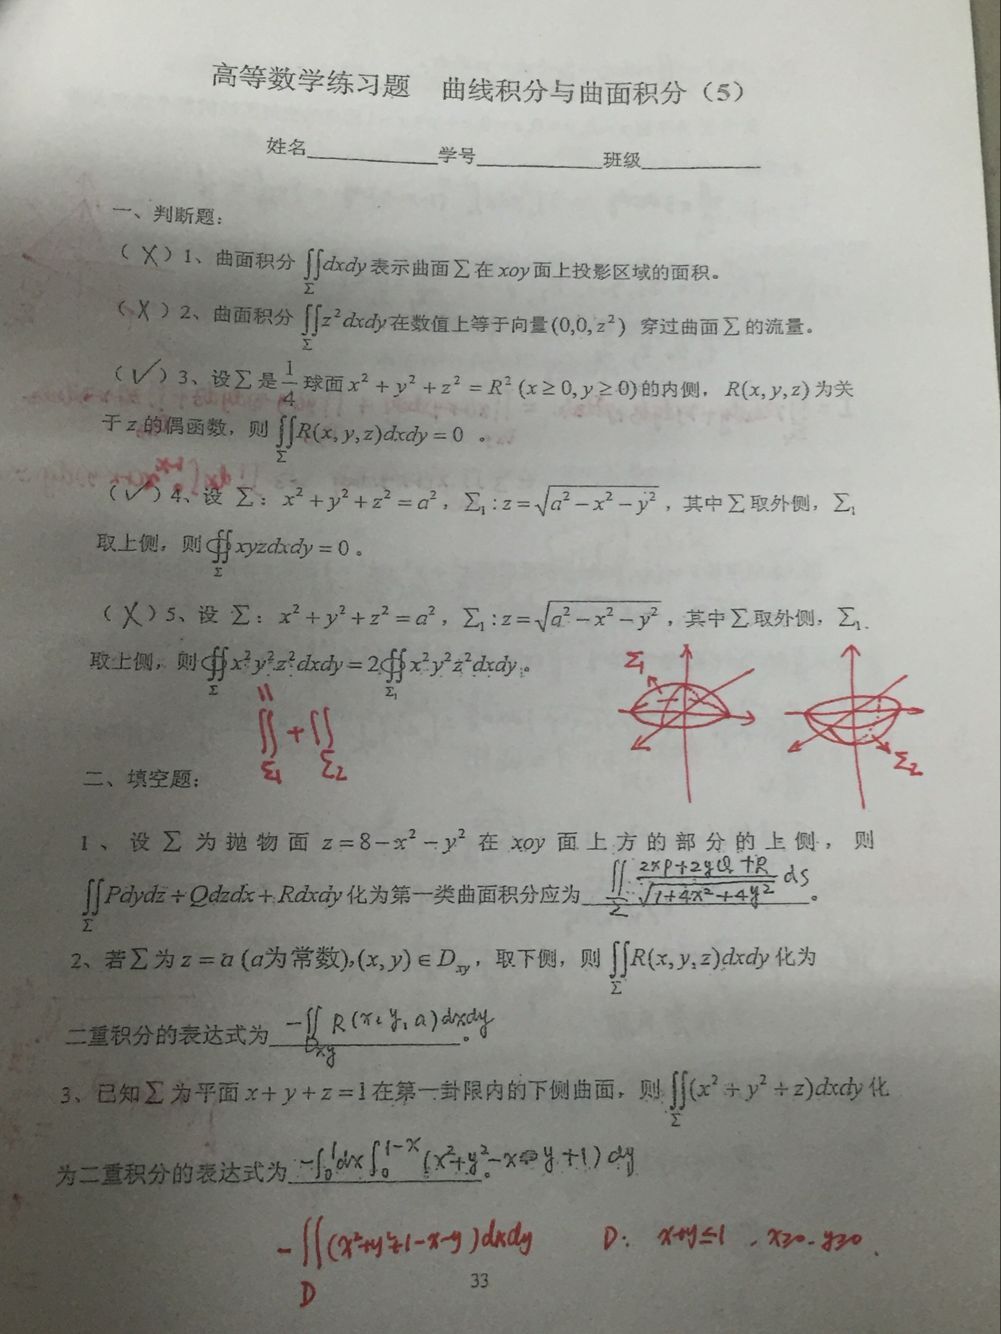 高等数学练习题 曲线积分与曲面积分（5）
姓名____________学号____________班级____________
一、判断题：
（ X ）1、曲面积分 ∬_Σ dxdy 表示曲面 Σ 在 xoy 面上投影区域的面积。
（ X ）2、曲面积分 ∬_Σ z²dxdy 在数值上等于向量(0,0,z²) 穿过曲面 Σ 的流量。
（ √ ）3、设 Σ 是 1/4 球面 x² + y² + z² = R² (x ≥ 0, y ≥ 0) 的内侧，R(x, y, z) 为关
于 z 的偶函数，则 ∬_Σ R(x, y, z)dxdy = 0 。
（ √ ）4、设 Σ：x² + y² + z² = a²，Σ₁ : z = √(a² − x² − y²)，其中 Σ 取外侧，Σ₁
取上侧，则 ∯_Σ xyzdxdy = 0 。
（ X ）5、设 Σ：x² + y² + z² = a²，Σ₁ : z = √(a² − x² − y²)，其中 Σ 取外侧，Σ₁
取上侧，则 ∯_Σ x²y²z²dxdy = 2∯_Σ₁ x²y²z²dxdy 。
Σ₁
Σ₂
= ∬_Σ₁ + ∬_Σ₂
二、填空题：
1、设 Σ 为抛物面 z = 8 − x² − y² 在 xoy 面上方的部分的上侧，则
∬_Σ Pdydz + Qdzdx + Rdxdy 化为第一类曲面积分应为 ∬_Σ (2xP+2yQ+R)/√(1+4x²+4y²) dS 。
2、若 Σ 为 z = a (a为常数), (x, y) ∈ D_xy，取下侧，则 ∬_Σ R(x, y, z)dxdy 化为
二重积分的表达式为 −∬_Dxy R(x, y, a)dxdy 。
3、已知 Σ 为平面 x + y + z = 1 在第一封限内的下侧曲面，则 ∬_Σ (x² + y² + z)dxdy 化
为二重积分的表达式为 −∫₀¹dx∫₀^(1−x) (x²+y²−x−y+1)dy 。
−∬_D (x²+y²+1−x−y)dxdy D: x+y≤1 , x≥0 , y≥0 .
33